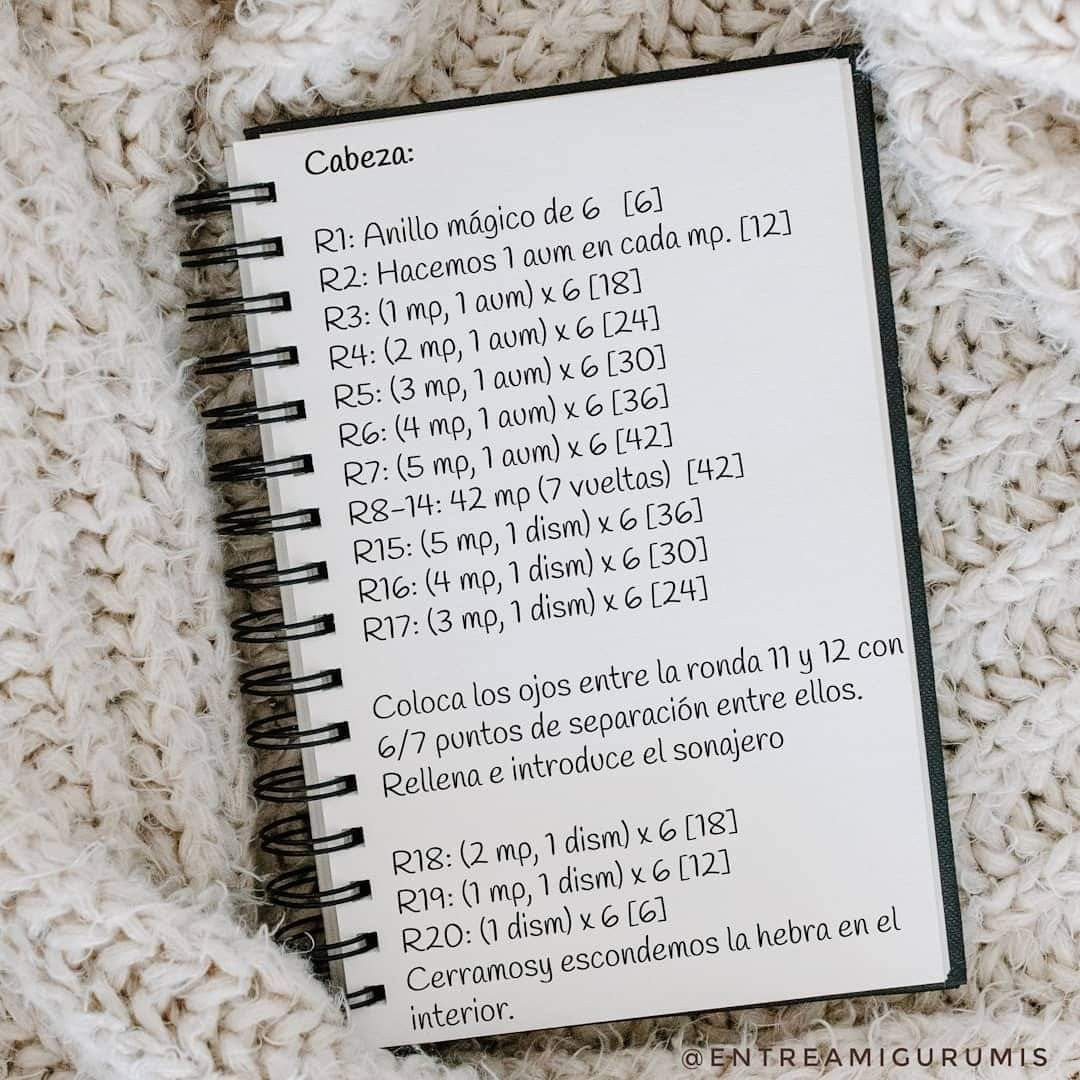 Cabeza:
R1: Anillo mágico de 6 [6]
R2: Hacemos 1 aum en cada mp. [12]
R3: (1 mp, 1 aum) x 6 [18]
R4: (2 mp, 1 aum) x 6 [24]
R5: (3 mp, 1 aum) x 6 [30]
R6: (4 mp, 1 aum) x 6 [36]
R7: (5 mp, 1 aum) x 6 [42]
R8-14: 42 mp (7 vueltas) [42]
R15: (5 mp, 1 dism) x 6 [36]
R16: (4 mp, 1 dism) x 6 [30]
R17: (3 mp, 1 dism) x 6 [24]
Coloca los ojos entre la ronda 11 y 12 con
6/7 puntos de separación entre ellos.
Rellena e introduce el sonajero
R18: (2 mp, 1 dism) x 6 [18]
R19: (1 mp, 1 dism) x 6 [12]
R20: (1 dism) x 6 [6]
Cerramosy escondemos la hebra en el
interior.
@ENTREAMIGURUMIS